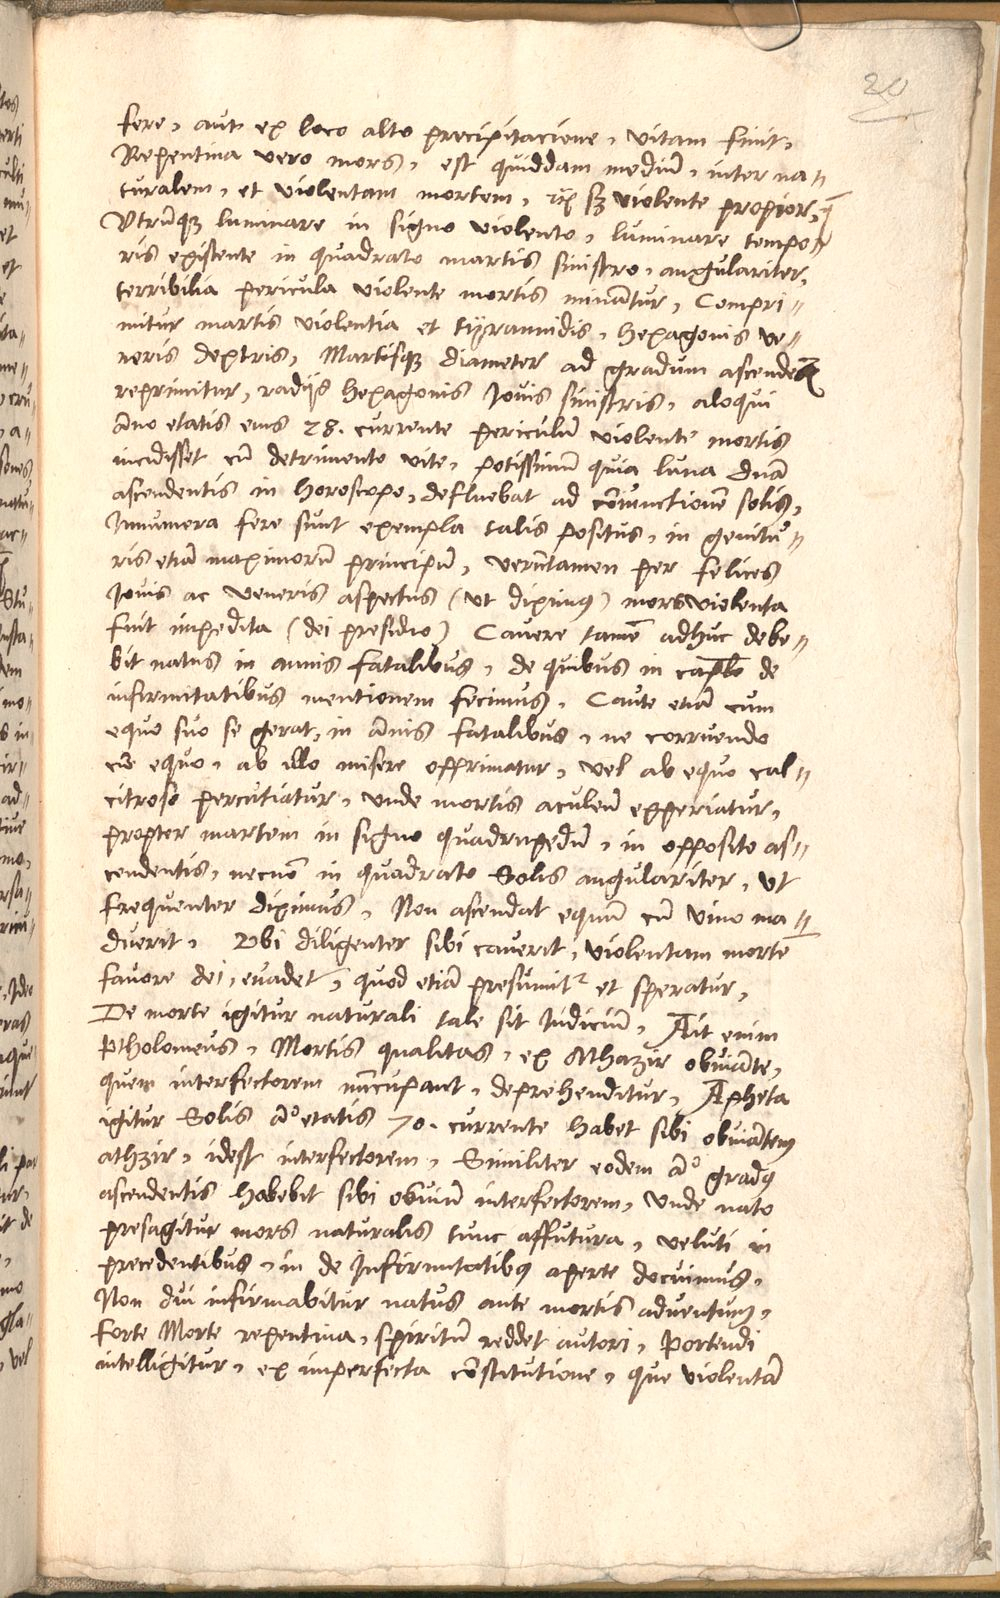 20
fere, aut ex loco alto precipitacione, vitam finit,
Repentina vero mors, est quiddam mediū, inter na-
turalem, et violentam mortem, violente propior,
Vtrūqꝫ luminare in signo violento, luminare tempo-
ris existente in quadrato martis sinistro, angulariter,
terribilia pericula violente mortis minātur, Compri-
mitur martis violentia et tÿrannidis, hexagonis ve-
neris dextris, Martisqꝫ diameter ad gradum ascendeñ
reprimitur, radijs hexagonis Jovis sinistris, aloqui
āno etatis eius 28. currente periculū violente mortis
incidisset cū detrimento vite, potissimū quia luna dnā
ascendentis in horoscopo, defluebat ad cōiunctionē solis,
Innumera fere sunt exempla talis positus, in genitu-
ris etiā maximorū principū, verūtamen per felices
Jovis ac veneris aspectus (vt diximꝰ) mors violenta
fuit impedita (dei presidio) Cavere tamē adhuc debe-
bit natus in annis fatalibus, de quibus in caplō de
infirmitatibus mentionem fecimus, Caute etiā cum
equo suo se gerat, in ānis fatalibus, ne corruendo
cū equo, ab illo misere opprimatur, vel ab equo cal-
citroso percutiatur, vnde mortis aculeū experiatur,
propter martem in signo quadrupedū, in opposito as-
cendentis, necnō in quadrato Solis angulariter, vt
frequenter diximus, Non ascendat equū cū vino ma-
duerit, Vbi diligenter sibi caverit, violentam mortē
favore dei, evadet, quod etiā presumitᵘʳ et speratur,
De morte igitur naturali tale sit Judiciū, Ait enim
Ptholomeus, Mortis qualitas, ex Athazir obviāte,
quem interfectorem nūcupant, deprehenditur, Apheta
igitur Solis āº etatis 70. currente habet sibi obviātem
athzir, idest interfectorem, Similiter eodem āº gradꝰ
ascendentis habebit sibi obviū interfectorem, vnde nato
presagitur mors naturalis tunc affutura, veluti in
precedentibus, in de Infirmitatibꝰ aperte docuimus,
Non diu infirmabitur natus ante mortis adventum,
forte Morte repentina, spiritū reddet autori, Portendi
intelligitur, ex imperfecta cōstitutione, que violentā